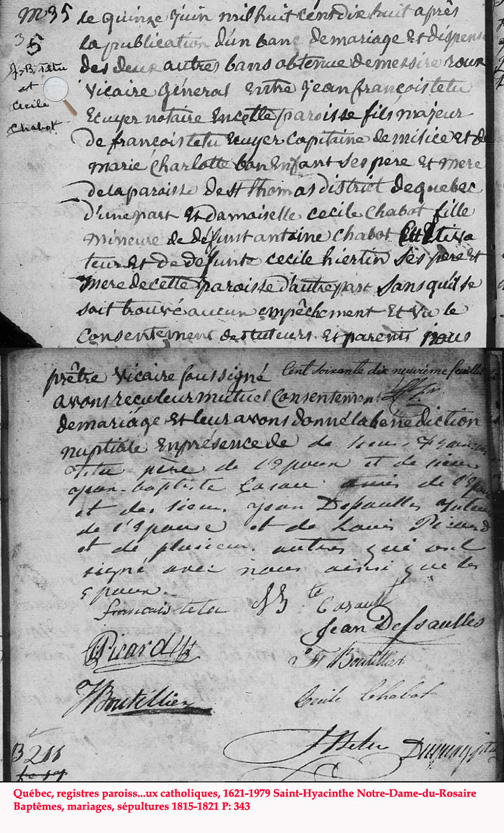 M35
35
J. Bte tetu
et
Cecile
Chabot
Le quinze juin mil huit cent dix huit après
la publication d'un banc de mariage et dispense
des deux autres bans obtenue de messire roux
vicaire Général entre jean françois tetu
Ecuyer notaire en cette paroisse fils majeur
de françois tetu Ecuyer capitaine de milice et de
marie Charlotte bon Enfant ses pere et mere
de la paroisse de St Thomas district de quebec
d'une part et damaiselle cecile Chabot fille
mineure de défunt antoine Chabot
teur et de défunte cecile hiertin ses pere et
mere de cette paroisse d'autre part sans qu'il se
soit trouvé aucun empêchement et vu le
Consentement des tuteurs et parents nous
Cent soixante dix neuvième feuillet
prêtre vicaire soussigné
avons recu leur mutuel Consentement
de mariage et leur avons donné la béné diction
nuptiale en présence de de sieur françois
Tetu pere de l'Epoux et de sieur
jean-baptiste Casau amis de l'Epoux
et des sieur jean Desaulles tuteur
de l'Epouse et de Louis Picard
et de plusieurs autres qui ont
signé avec nous ainsi que les
Epoux
francois tetu
Casault
Jean Dessaulles
Picard
Boutillier
T Boutillier
Cecile Chabot
B 255
Tetu
Québec, registres paroiss...ux catholiques, 1621-1979 Saint-Hyacinthe Notre-Dame-du-Rosaire
Baptêmes, mariages, sépultures 1815-1821 P: 343